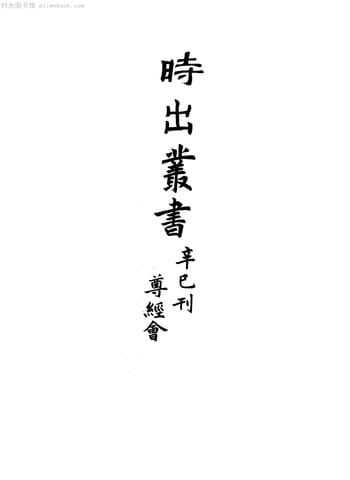 时光图书馆 elsebook.com
時出叢書
辛巳刊
尊經會